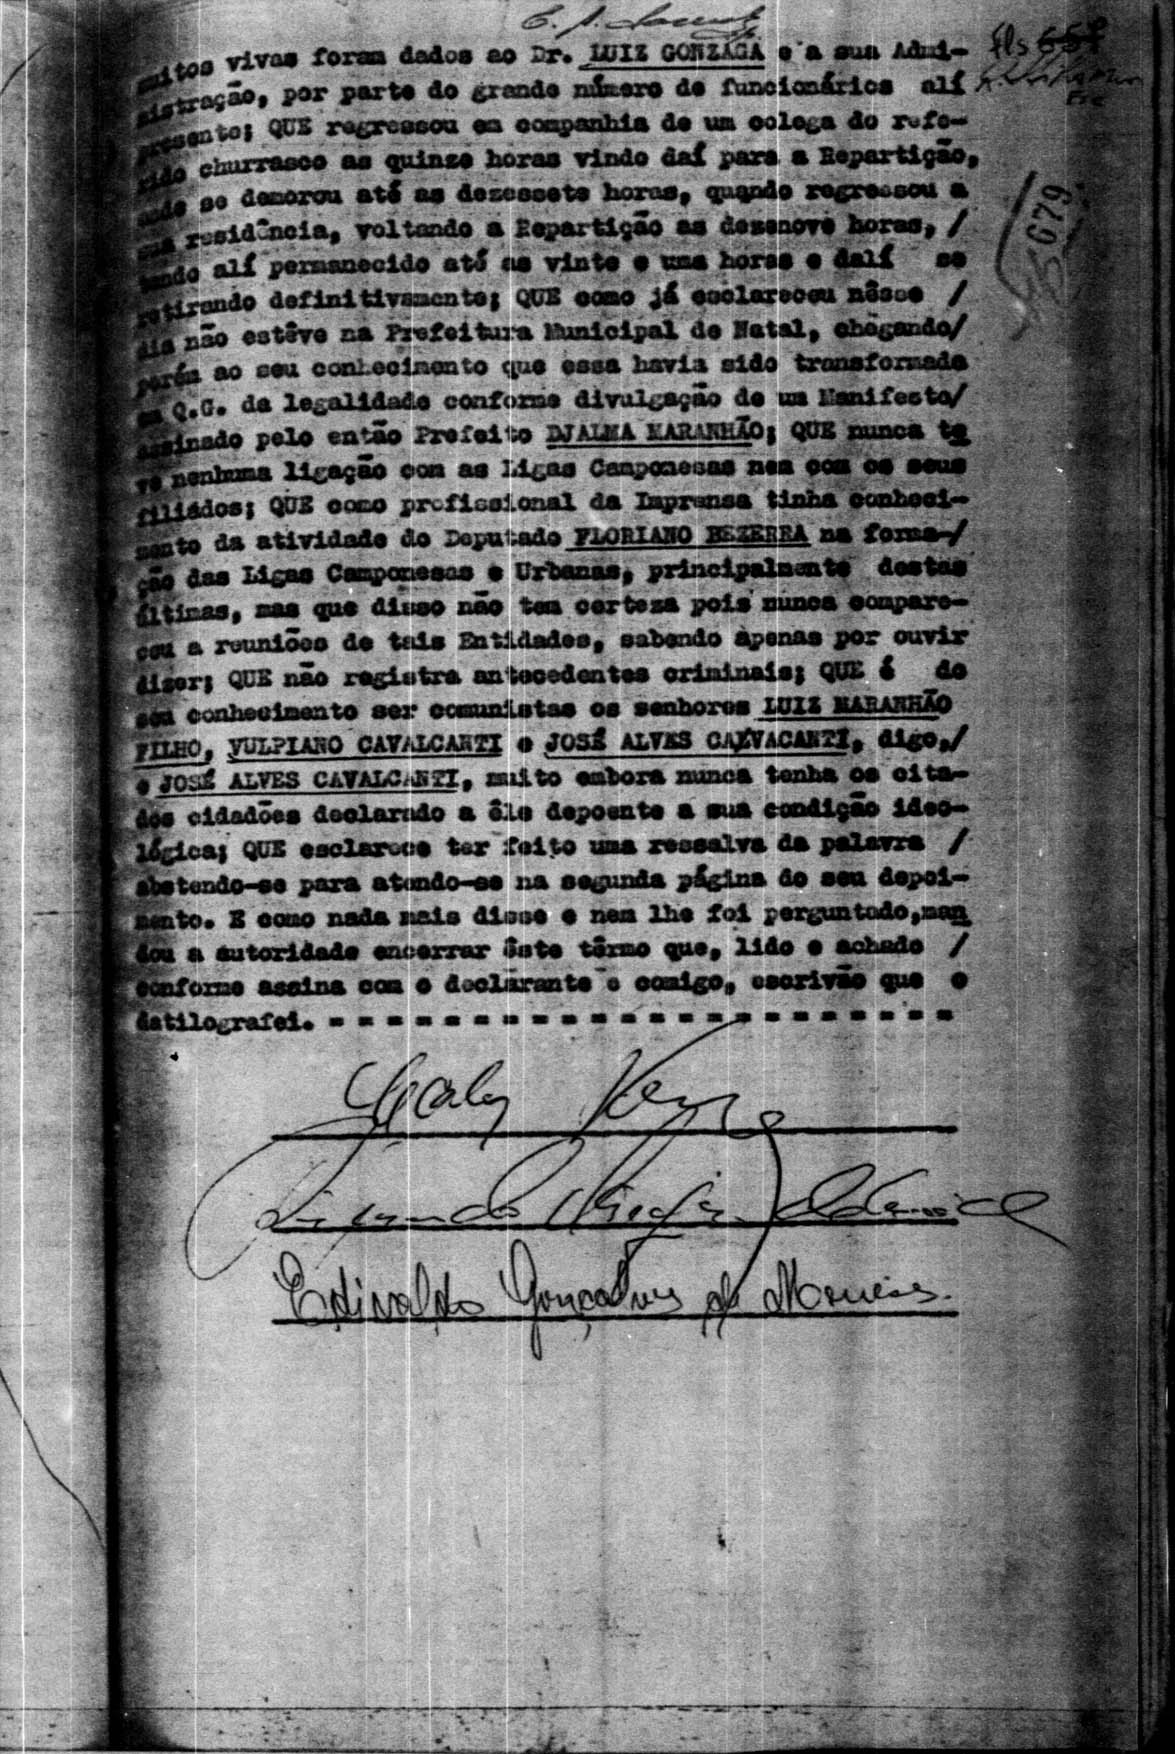 fls 657
679
muitos vivas foram dados ao Dr. LUIZ GONZAGA e a sua Admi-
nistração, por parte do grande número de funcionários alí
presente; QUE regressou em companhia de um colega do refe-
rido churrasco as quinze horas vindo daí para a Repartição,
onde se demorou até as dezessete horas, quando regressou a
sua residência, voltando a Repartição as dezenove horas, /
tendo alí permanecido até as vinte e uma horas e dalí se
retirando definitivamente; QUE como já esclareceu nêsse /
dia não estêve na Prefeitura Municipal de Natal, chegando/
porém ao seu conhecimento que essa havia sido transformada
em Q.G. da legalidade conforme divulgação de um Manifesto/
assinado pelo então Prefeito DJALMA MARANHÃO; QUE nunca te
ve nenhuma ligação com as Ligas Camponesas nem com os seus
filiádos; QUE como profissional da Imprensa tinha conheci-
mento da atividade do Deputado FLORIANO BEZERRA na forma-/
ção das Ligas Camponesas e Urbanas, principalmente destas
últimas, mas que disso não tem certeza pois nunca compare-
ceu a reuniões de tais Entidades, sabendo apenas por ouvir
dizer; QUE não registra antecedentes criminais; QUE é do
seu conhecimento ser comunistas os senhores LUIZ MARANHÃO
FILHO, VULPIANO CAVALCANTI e JOSÉ ALVES CAVVACANTI, digo,/
e JOSÉ ALVES CAVALCANTI, muito embora nunca tenha os cita-
dos cidadões declarado a êle depoente a sua condição ideo-
lógica; QUE esclarece ter feito uma ressalva da palavra /
abstendo-se para atendo-se na segunda página do seu depoi-
mento. E como nada mais disse e nem lhe foi perguntado,man
dou a autoridade encerrar êste têrmo que, lido e achado /
conforme assina com o declarante e comigo, escrivão que o
datilografei. - - - - - - - - - - - - - - - - - - - - - -
Edivaldo Gonçalves de Menezes.